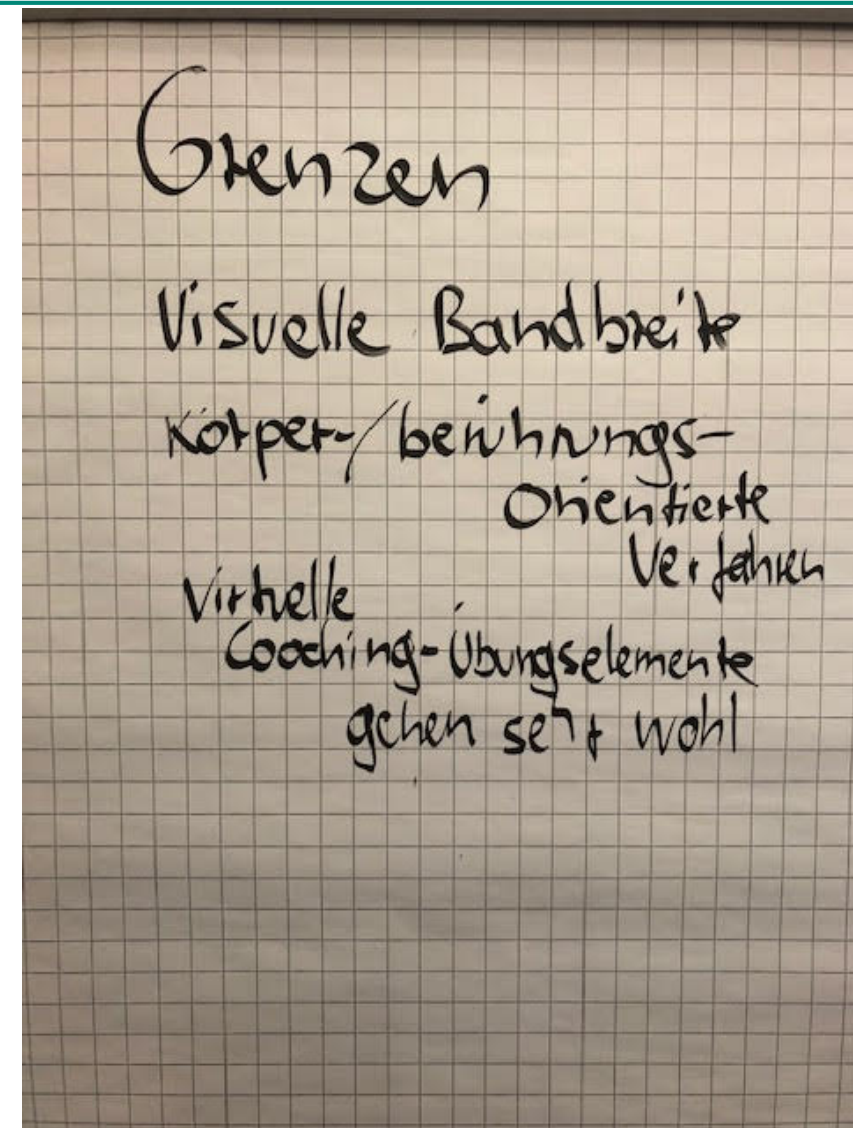 Grenzen
Visuelle Bandbreite
Körper-/berührungs-
Orientierte
Verfahren
Virtuelle
Coaching-Übungselemente
gehen sehr wohl